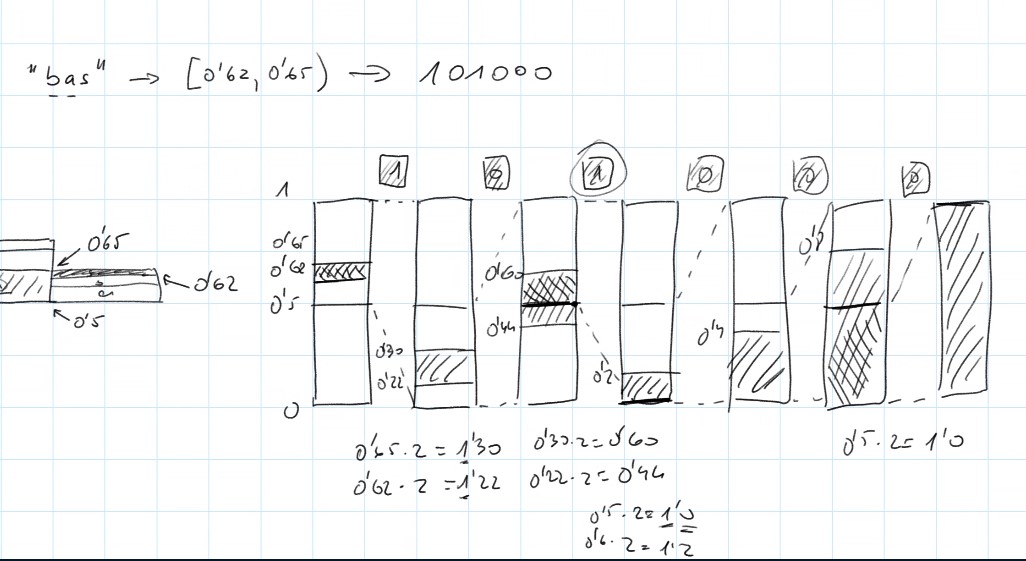 "bas" → [0'62, 0'65) → 101000
1 0 1 0 0 0
1
0'65
0'62
0'5
0
0'65
0'62
a
0'5
0'30
0'22
0'60
0'44
0'2
0'4
0'8
0'65·2 = 1'30
0'62·2 = 1'22
0'30·2 = 0'60
0'22·2 = 0'44
0'5·2 = 1'0
0'6·2 = 1'2
0'5·2 = 1'0